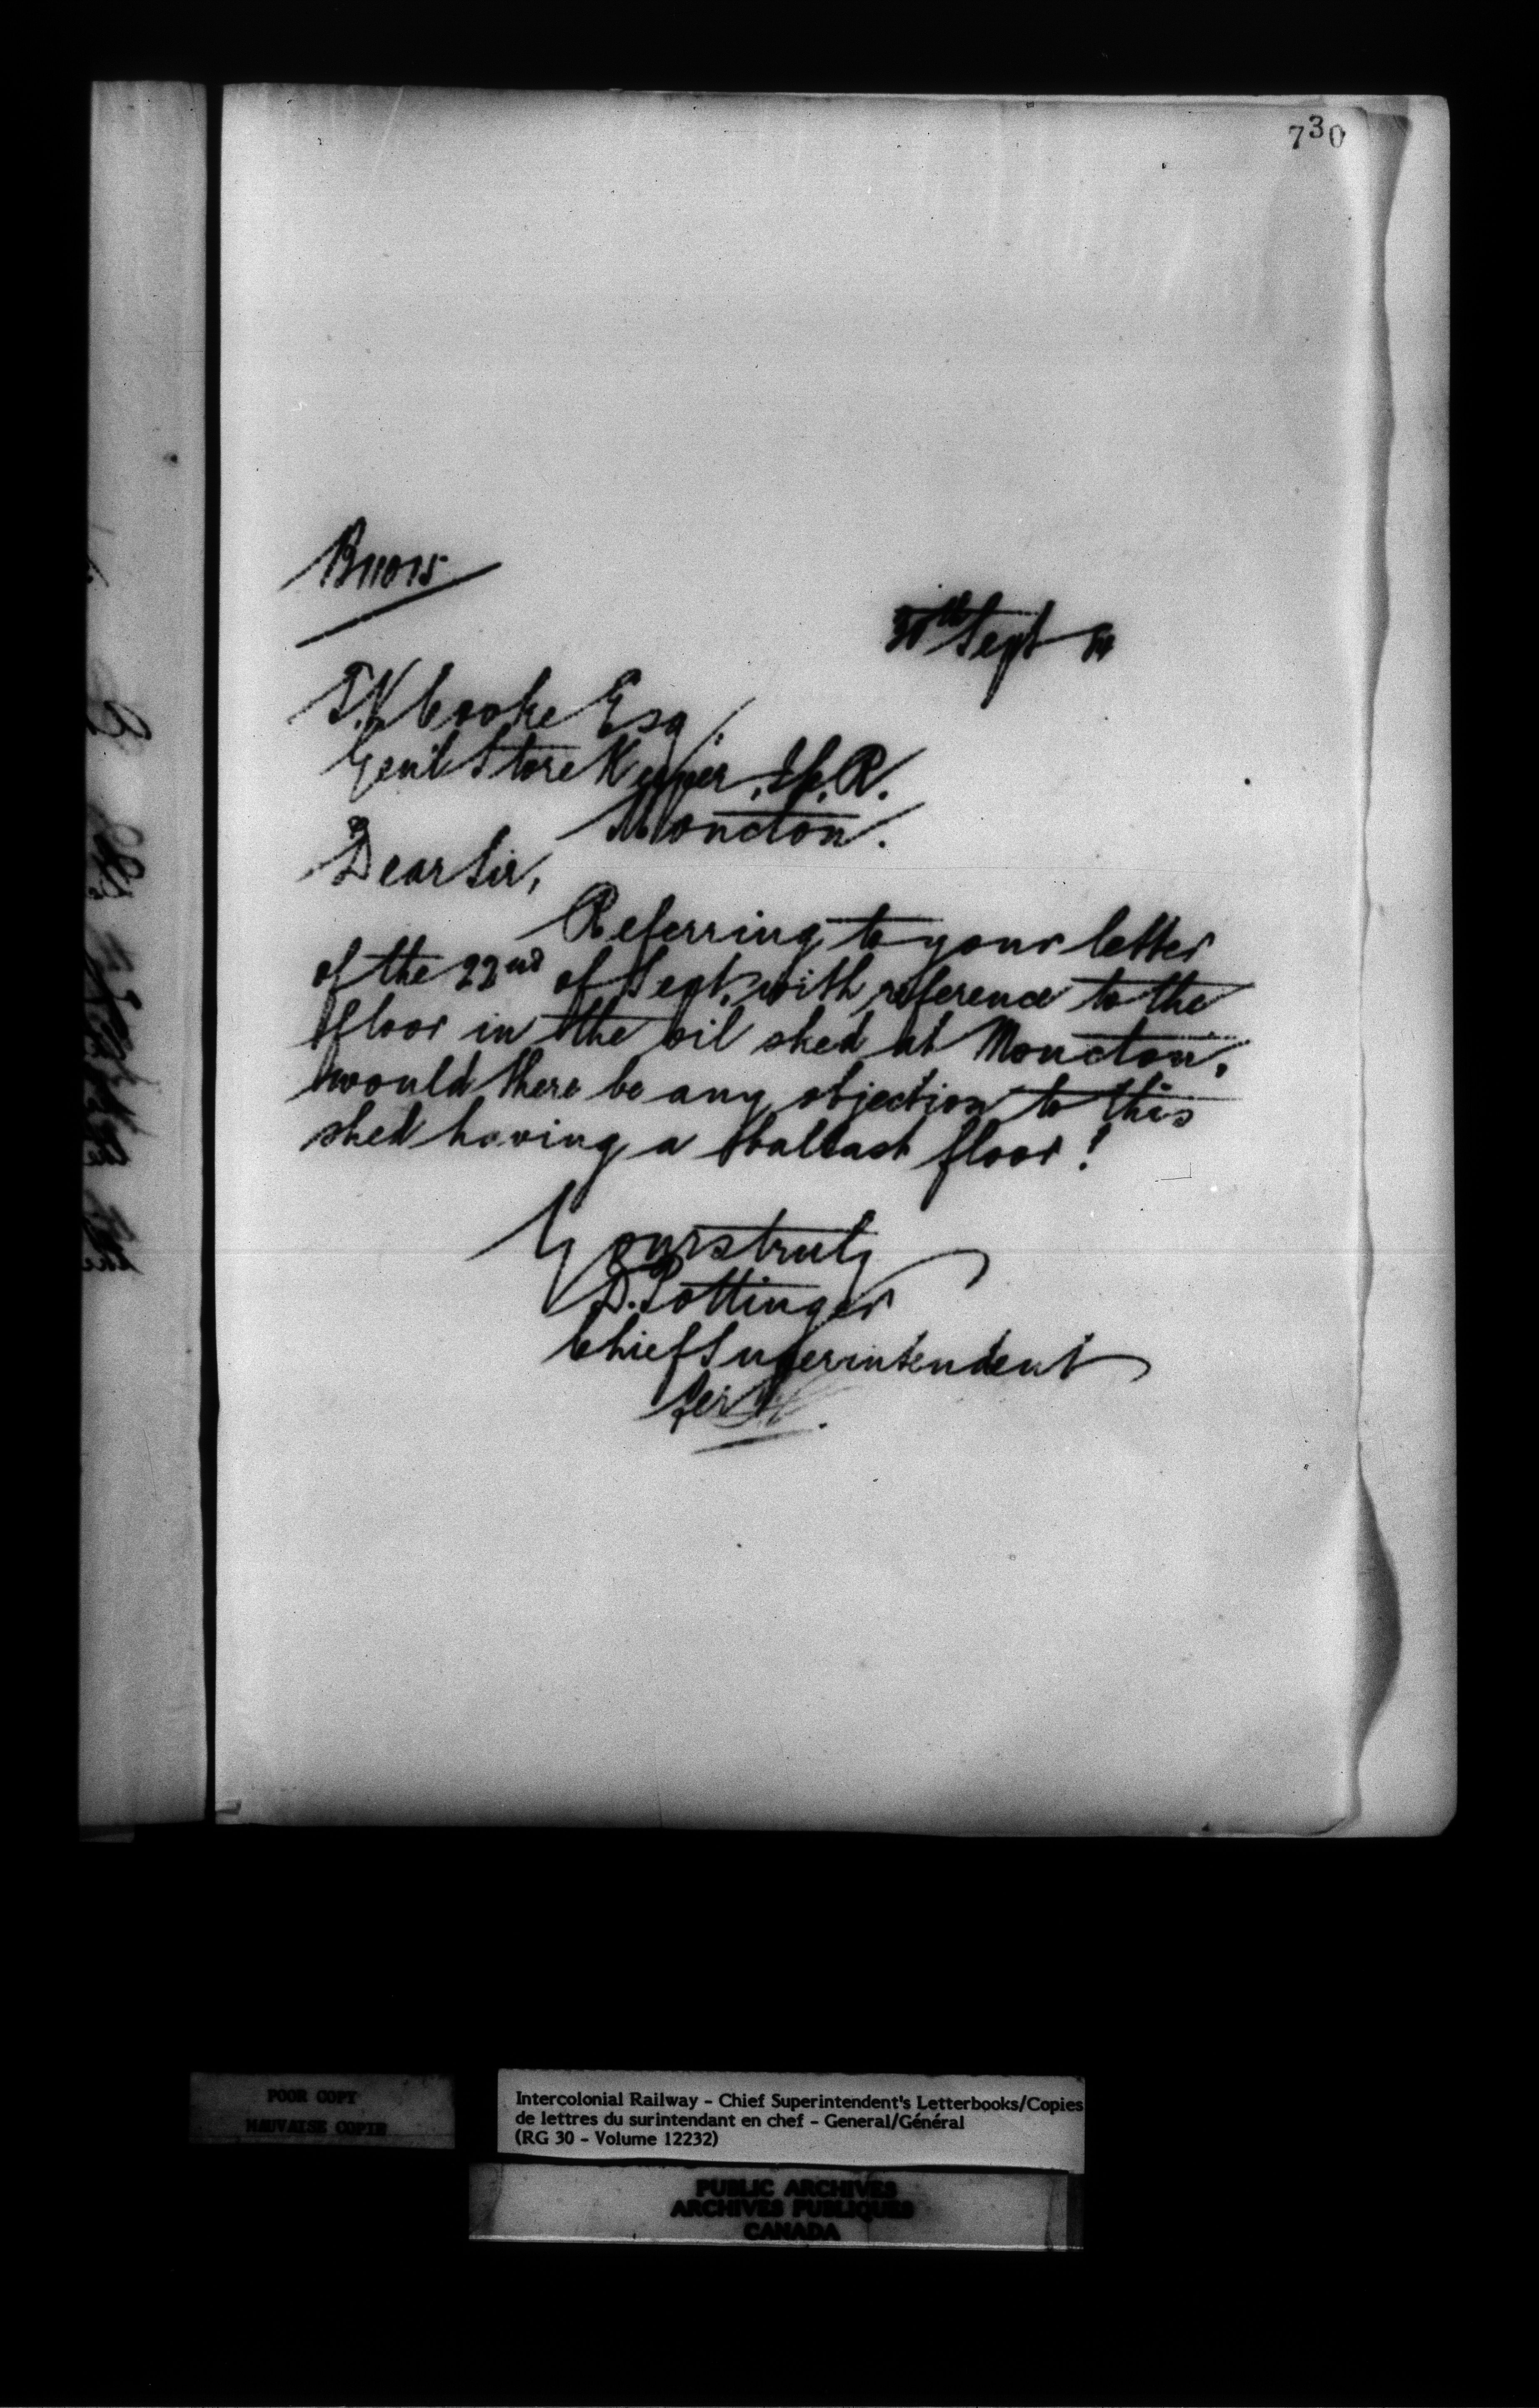 730
B11015
30th Sept
T.V. Cooke Esq.
Gen'l Store Keeper, I.C.R.
Moncton.
Dear Sir,
Referring to your letter
of the 22nd of Sept. with reference to the
floor in the oil shed at Moncton,
would there be any objection to this
shed having a ballast floor?
Yours truly
D. Pottinger
Chief Superintendent
Per
POOR COPY
MAUVAISE COPIE
Intercolonial Railway - Chief Superintendent's Letterbooks/Copies
de lettres du surintendant en chef - General/Général
(RG 30 - Volume 12232)
PUBLIC ARCHIVES
ARCHIVES PUBLIQUES
CANADA